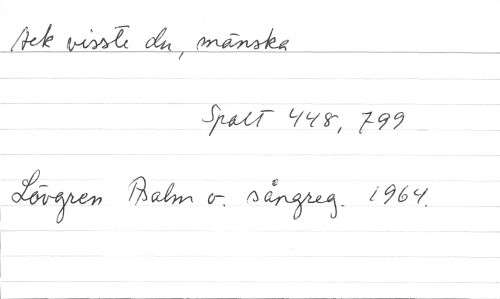 Ack visste du, mänska
Spalt 448, 799
Lövgren Psalm o. sångreg. 1964.